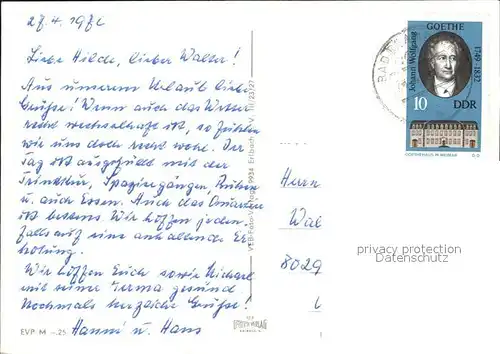 27.4.197
Liebe Hilde, lieber Walter!
Aus unserem Urlaub liebe
Grüße! Wenn auch das Wetter
recht wechselhaft ist, so fühlen
wir uns doch recht wohl. Der
Tag ist ausgefüllt mit der
Trinkkur, Spaziergängen, Ruhen
u. auch Essen. Auch das Quartier
ist bestens. Wir hoffen jeden-
falls auf eine anhaltende Er-
holung.
Wir hoffen Euch sowie Michael
mit seiner Irma gesund
Nochmals herzliche Grüße!
Hanni u. Hans
EVP M –.25
VEB Foto-Verlag 9934 Erlbach
BAD
GOETHE
Johann Wolfgang
1749-1832
10
DDR
GOETHEHAUS IN WEIMAR
Herrn
Wal
8029
privacy protection
Datenschutz